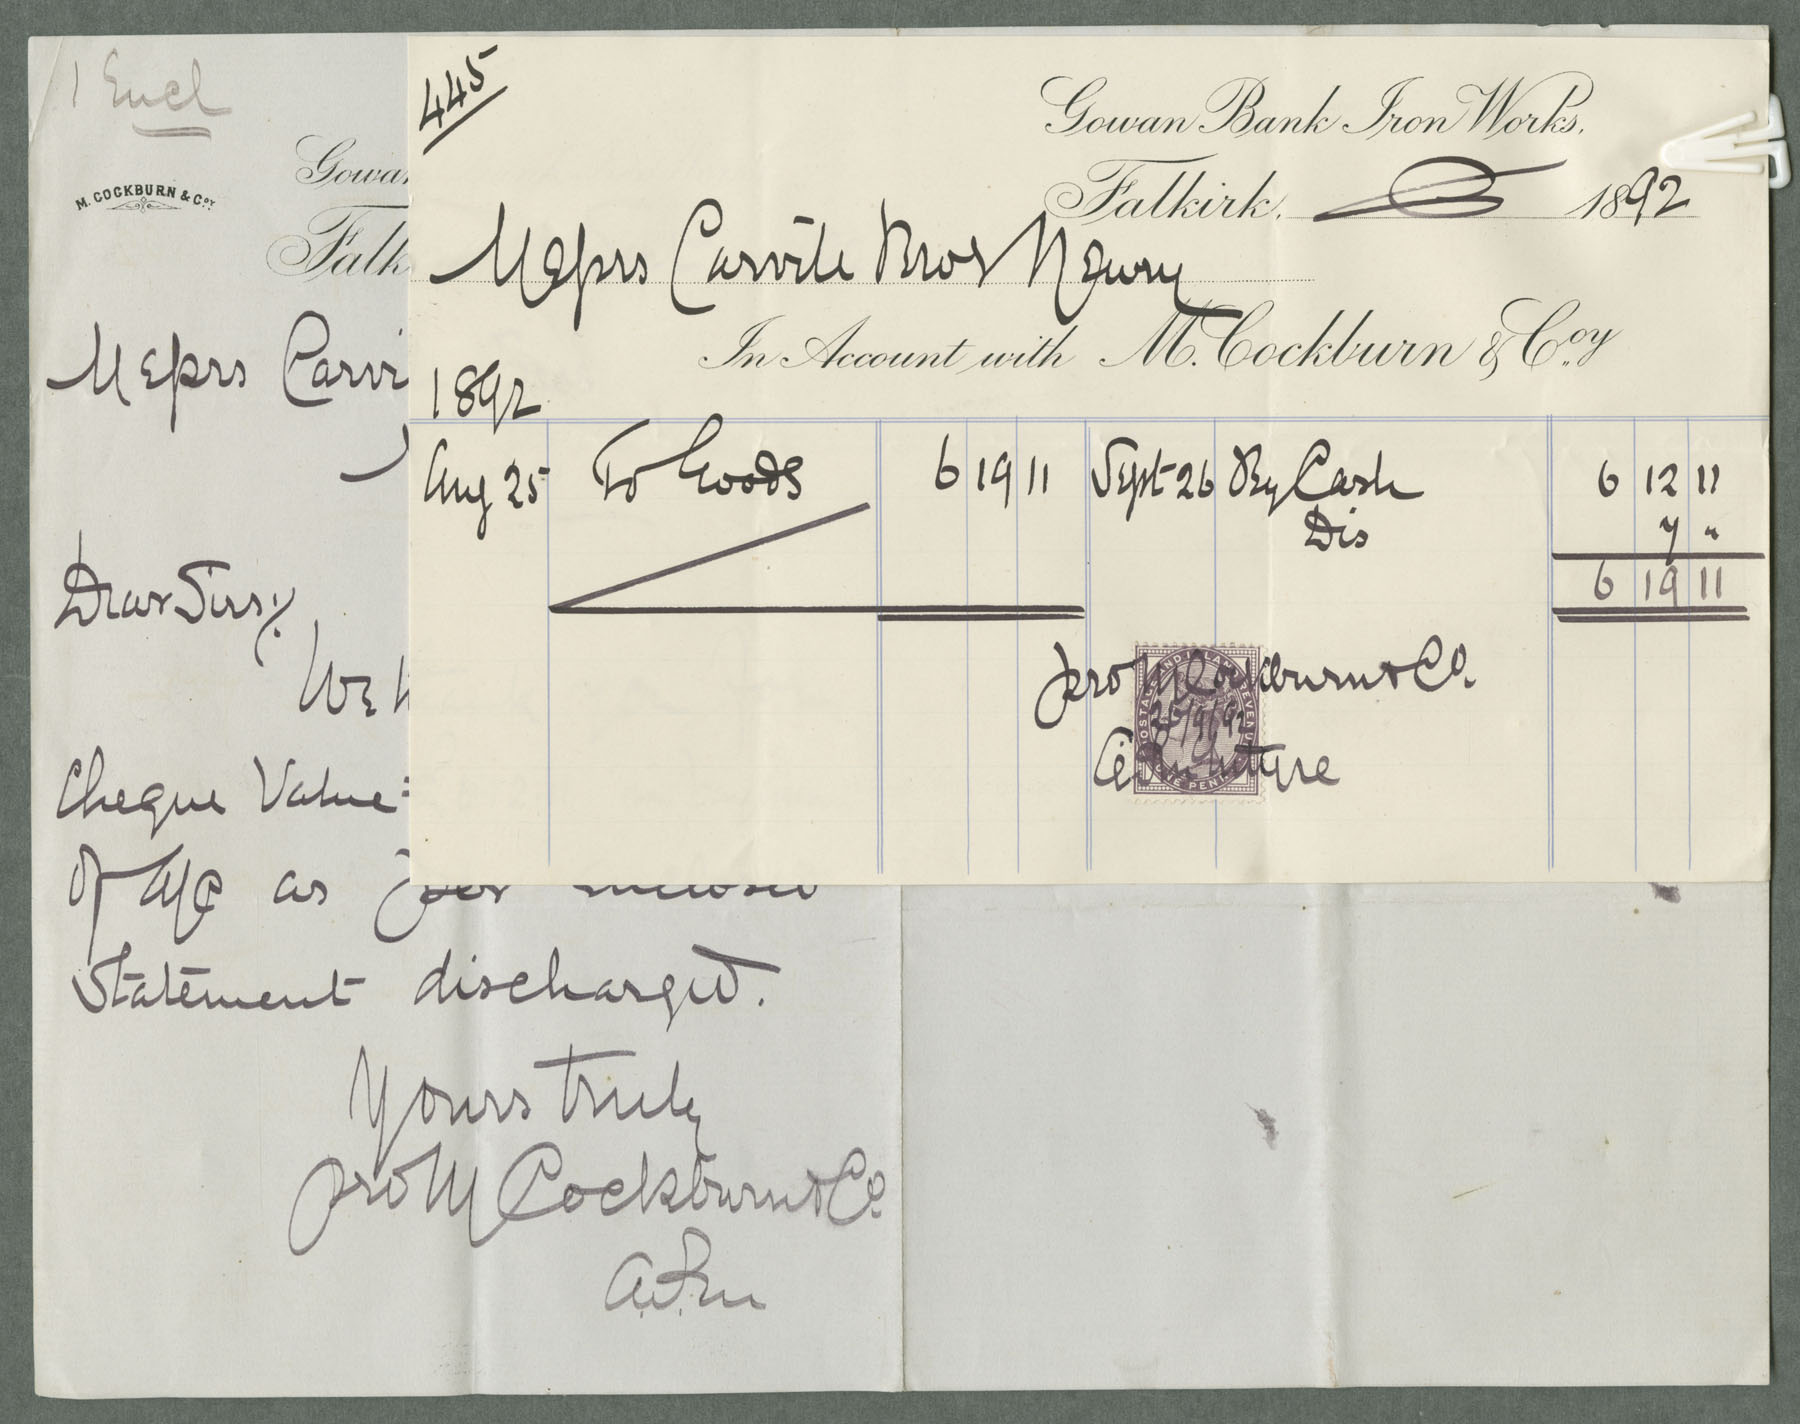 1 Encl
M. COCKBURN & Coy.
Gowan
Falk
Messrs Carvi
Dear Sirs,
We
Cheque Value
of a/c as per enclosed
Statement discharged.
Yours truly
pro M Cockburn & Co.
445
Gowan Bank Iron Works.
Falkirk. 1892
Messrs Carvill Bros Newry
In Account with M. Cockburn & Coy
1892
Aug 25 To Goods 6 19 11 Sept 26 By Cash 6 12 11
Dis 7 "
6 19 11
pro M Cockburn & Co.
26/9/92
POSTAGE AND INLAND REVENUE
ONE PENNY